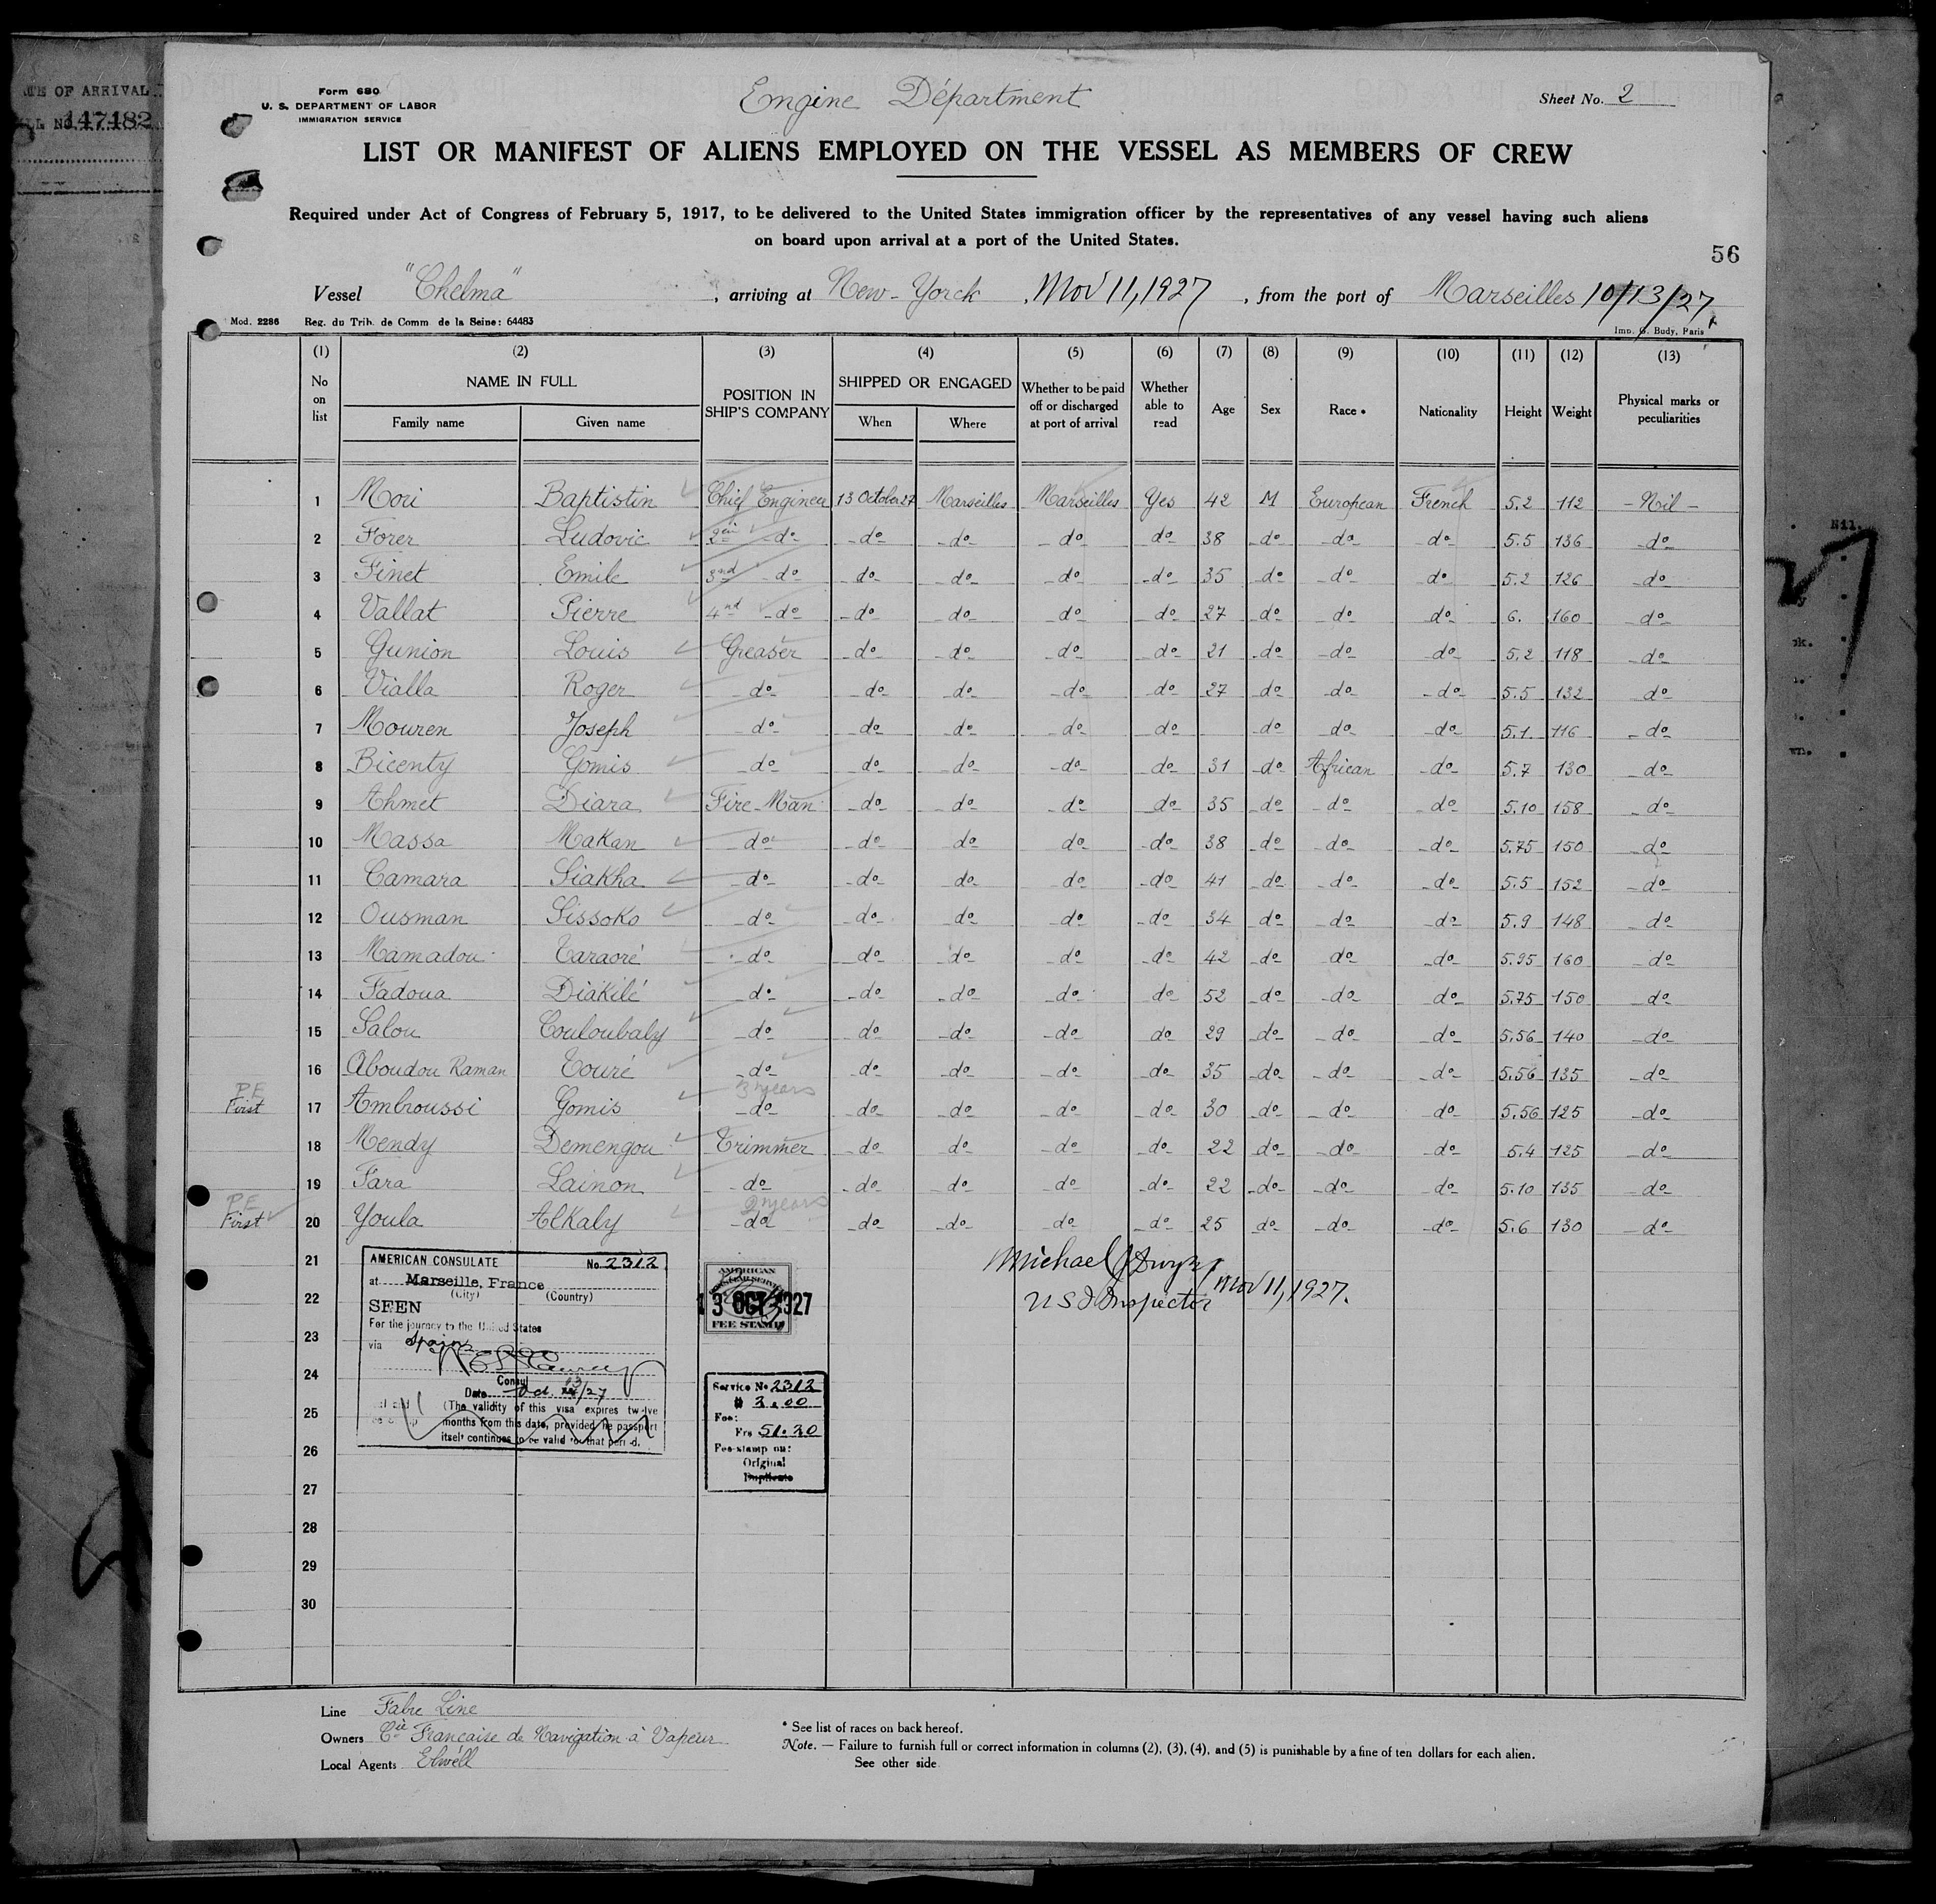 TE OF ARRIVAL
LL No. 147182
Form 680
U. S. DEPARTMENT OF LABOR
IMMIGRATION SERVICE
Engine Départment
Sheet No. 2
LIST OR MANIFEST OF ALIENS EMPLOYED ON THE VESSEL AS MEMBERS OF CREW
Required under Act of Congress of February 5, 1917, to be delivered to the United States immigration officer by the representatives of any vessel having such aliens
on board upon arrival at a port of the United States.
56
Vessel "Chelma", arriving at New-Yorck, Nov 11, 1927, from the port of Marseilles 10/13/27
Mod. 2286 Reg. du Trib. de Comm. de la Seine: 64483 Imp. G. Body, Paris
(1) (2) (3) (4) (5) (6) (7) (8) (9) (10) (11) (12) (13)
No on list NAME IN FULL POSITION IN SHIP'S COMPANY SHIPPED OR ENGAGED Whether to be paid off or discharged at port of arrival Whether able to read Age Sex Race * Nationality Height Weight Physical marks or peculiarities
Family name Given name When Where
1 Mori Baptistin Chief Engineer 13 October 27 Marseilles Marseilles Yes 42 M European French 5.2 112 - Nil -
2 Forer Ludovic 2 do do do do do 38 do do do 5.5 136 do
3 Finet Emile 3nd do do do do do 35 do do do 5.2 126 do
4 Vallat Pierre 4nd do do do do do 27 do do do 6. 160 do
5 Gunion Louis Greaser do do do do 21 do do do 5.2 118 do
6 Vialla Roger do do do do do 27 do do do 5.5 132 do
7 Mouren Joseph do do do do do do do do 5.1 116 do
8 Bicenty Gomis do do do do do 31 do African do 5.7 130 do
9 Ahmet Diara Fire-Man do do do do 35 do do do 5.10 158 do
10 Massa Makan do do do do do 38 do do do 5.75 150 do
11 Camara Siakha do do do do do 41 do do do 5.5 152 do
12 Ousman Sissoko do do do do do 34 do do do 5.9 148 do
13 Mamadou Taraoré do do do do do 42 do do do 5.95 160 do
14 Fadoua Diakilé do do do do do 52 do do do 5.75 150 do
15 Salou Couloubaly do do do do do 29 do do do 5.56 140 do
16 Aboudou Raman Touré do do do do do 35 do do do 5.56 135 do
P.E. First 17 Ambroussi Gomis 3 years do do do do do 30 do do do 5.56 125 do
18 Mendy Demengou Trimmer do do do do 22 do do do 5.4 125 do
19 Fara Lainon do do do do do 22 do do do 5.10 135 do
P.E. First 20 Youla Alkaly 2 years do do do do do 25 do do do 5.6 130 do
21
22
23
24
25
26
27
28
29
30
AMERICAN CONSULATE No. 2312
at Marseille, France
(City) (Country)
SEEN
For the journey to the United States
via Spain
Consul
Date Oct. 13/27
(The validity of this visa expires twelve
months from this date, provided he passport
itself continues to be valid for that period.
AMERICAN
13 OCT 1927
FEE STAMP
Service No 2312
# 2.00
Fee:
Frs 51.20
Fee-stamp on:
Original
Duplicate
Michael J Dwyer
U S I Inspector Nov 11, 1927.
Line Fabre Line
Owners Cie Francaise de Navigation à Vapeur
Local Agents Elwell
* See list of races on back hereof.
Note. — Failure to furnish full or correct information in columns (2), (3), (4), and (5) is punishable by a fine of ten dollars for each alien.
See other side
Nil.